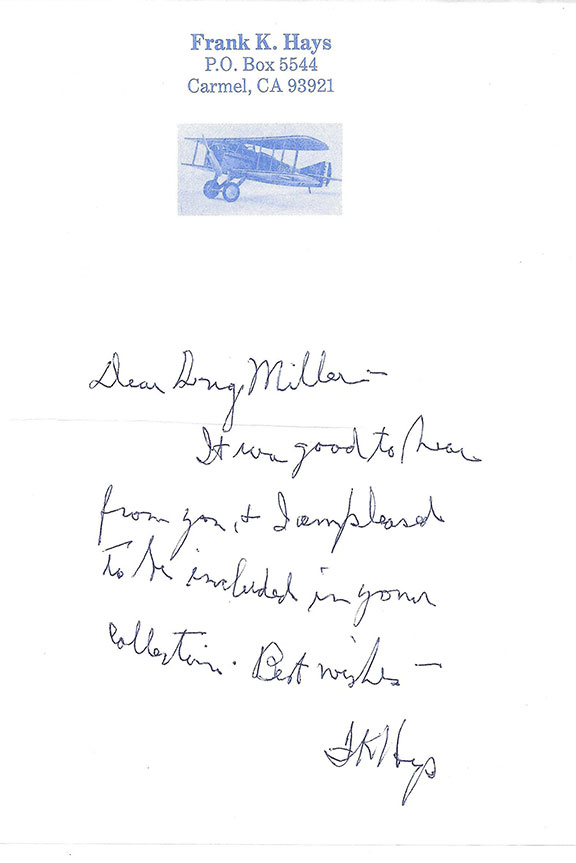 Frank K. Hays
P.O. Box 5544
Carmel, CA 93921
Dear Doug Miller —
It was good to hear
from you, & I am pleased
to be included in your
collection. Best wishes —
FK Hays